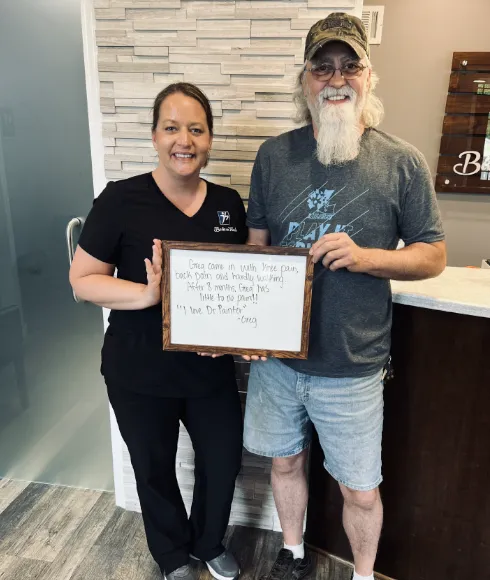 Greg came in with knee pain,
back pain and hardly walking.
After 8 months, Greg has
little to no pain!!
"I love Dr. Painter"
-Greg
PLAY